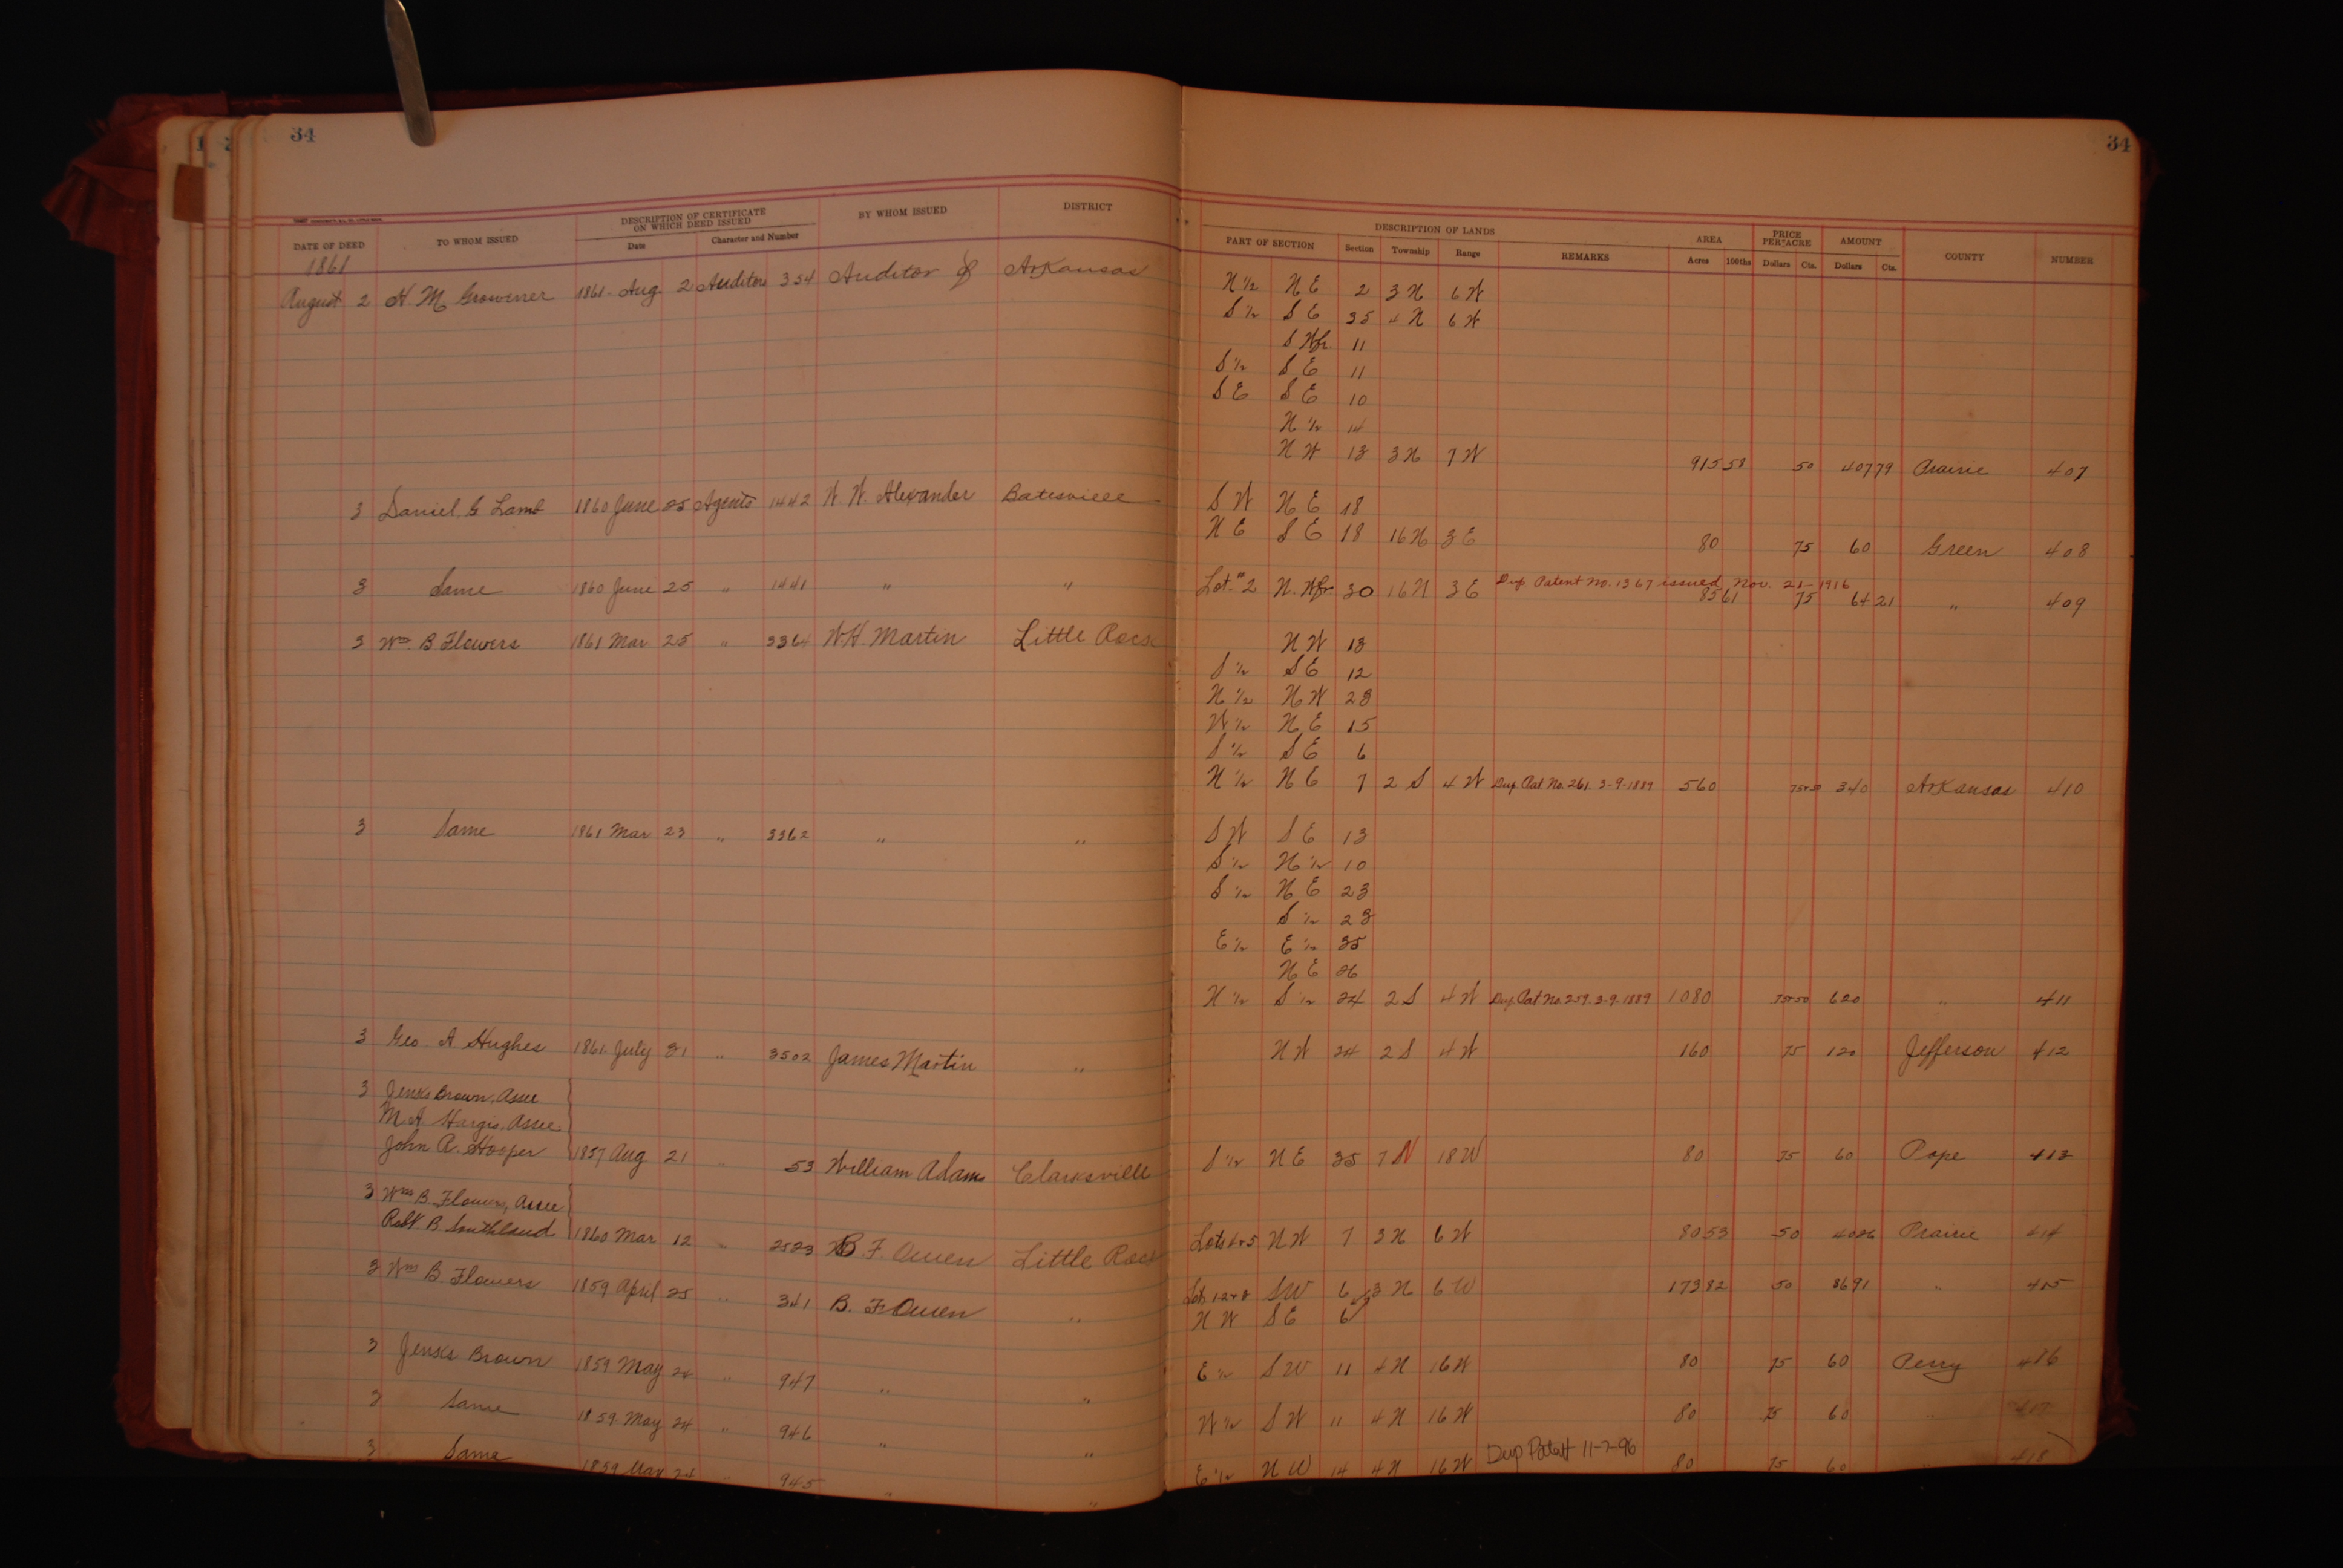 34
34
DATE OF DEED TO WHOM ISSUED DESCRIPTION OF CERTIFICATE ON WHICH DEED ISSUED Date Character and Number BY WHOM ISSUED DISTRICT
DESCRIPTION OF LANDS PART OF SECTION Section Township Range REMARKS AREA Acres 100ths PRICE PER ACRE Dollars Cts. AMOUNT Dollars Cts. COUNTY NUMBER
1861
August 2 H. M. 1861 Aug. 2 Auditors 354 Auditor of Arkansas N ½ N E 2 3 N 6 W
S ½ S E 35 4 N 6 W
S W fr. 11
S ½ S E 11
S E S E 10
N ½ 14
N W 13 3 N 7 W 915 58 50 407 79 Prairie 407
3 Daniel G Lamb 1860 June 25 Agents 1442 W. W. Alexander Batesville S W N E 18
N E S E 18 16 N 3 E 80 75 60 Green 408
3 Same 1860 June 25 " 1441 " " Lot #2 N. W fr 30 16 N 3 E Dup Patent No. 1367 issued Nov. 21-1916 85 61 75 64 21 " 409
3 Wm. B Flowers 1861 Mar 25 " 3364 W H. Martin Little Rock N W 13
S ½ S E 12
N ½ N W 23
W ½ N E 15
S ½ S E 6
N ½ N E 7 2 S 4 W Dup. Pat No. 261. 3-9-1889 560 75+50 340 Arkansas 410
3 Same 1861 Mar 23 " 3362 " " S W S E 13
S ½ N ½ 10
S ½ N E 23
S ½ 23
E ½ E ½ 35
N E 26
N ½ S ½ 24 2 S 4 W Dup. Pat No. 259. 3-9-1889 1080 75+50 620 " 411
3 Geo A Hughes 1861 July 31 " 3502 James Martin " N W 24 2 S 4 W 160 75 120 Jefferson 412
3 Jenks Brown, Assee
M. A. Hargis, Assee
John R. Hooper 1857 Aug 21 " 53 William Adams Clarksville S ½ N E 35 7 N 18 W 80 75 60 Pope 413
3 Wm B. Flowers, Assee
Robt B Southland 1860 Mar 12 " 2523 B. F. Owen Little Rock Lots 4+5 N W 7 3 N 6 W 80 53 50 40 26 Prairie 414
3 Wm B. Flowers 1859 April 25 " 341 B. F Owen " Lots 1 2 + 3 S W 6 3 N 6 W 173 82 50 86 91 " 415
N W S E 6
3 Jenks Brown 1859 May 24 " 947 " " E ½ S W 11 4 N 16 W 80 75 60 Perry 416
3 Same 1859 May 24 " 946 " " W ½ S W 11 4 N 16 W 80 75 60 " 417
3 Same 1859 May 24 " 945 " " E ½ N W 14 4 N 16 W Dup Patent 11-7-96 80 75 60 " 418